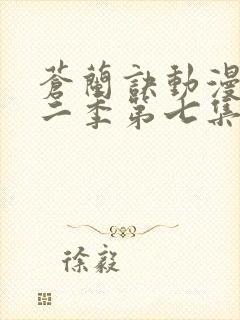 蒼蘭訣動漫
二季第七集
徐毅